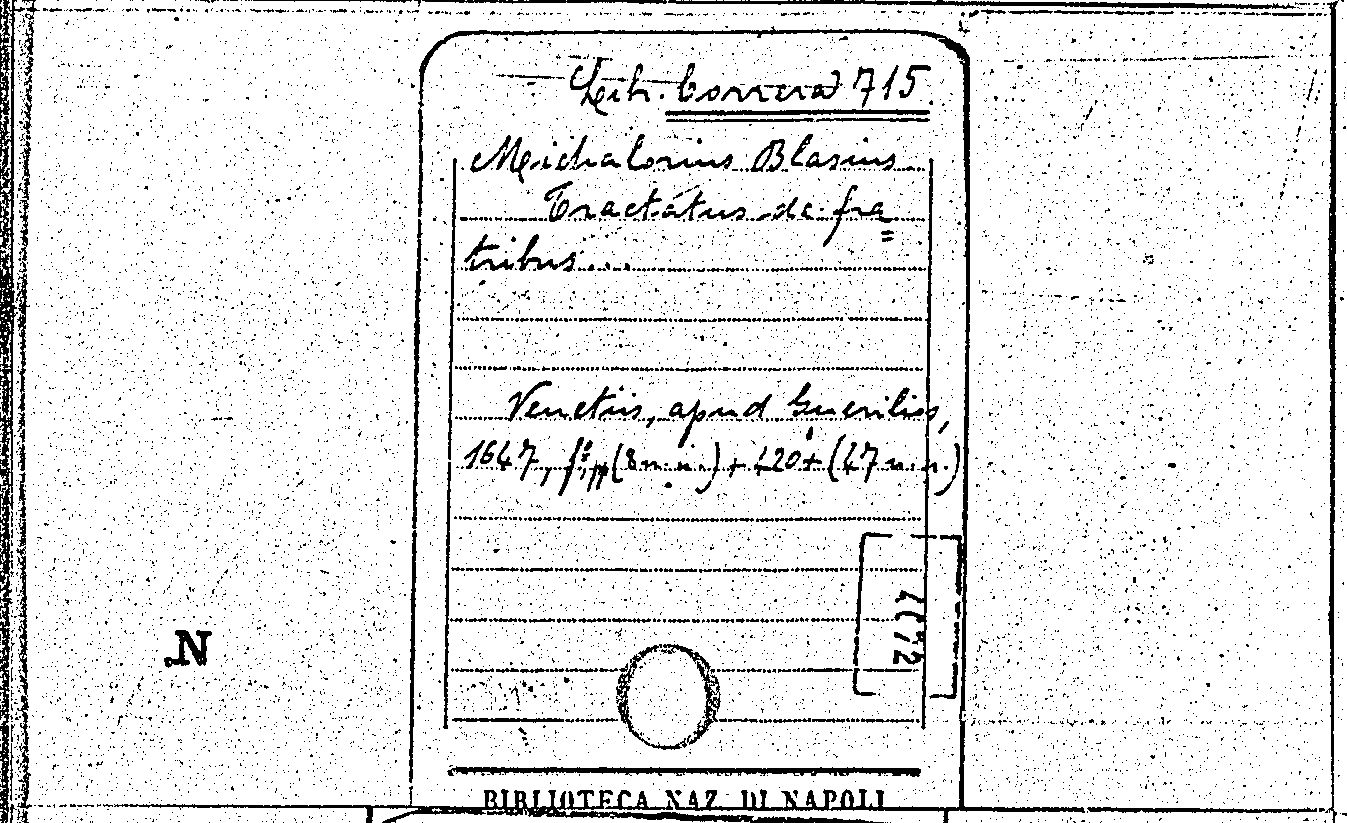 Lib. Correra 715
Michalorius Blasius.
Tractatus de fra
tribus...
Venetiis, apud Guerilios,
1647, f°, pp (8 n. n.) + 420 + (47 n. n.)
N
BIBLIOTECA NAZ. DI NAPOLI